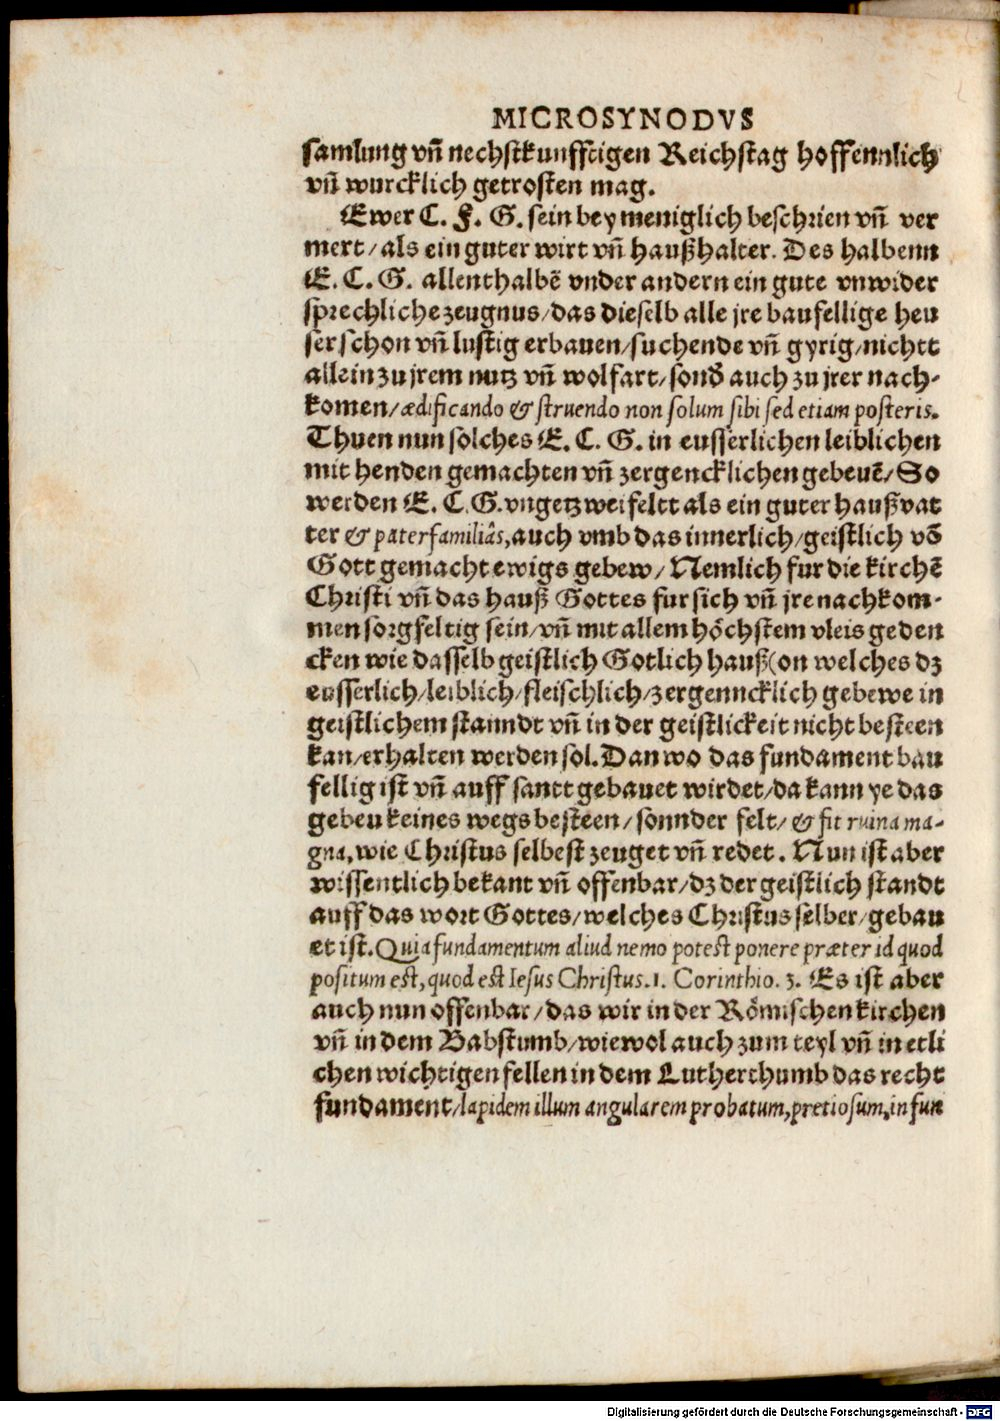 MICROSYNODVS
samlung vn̄ nechstkunfftigen Reichstag hoffennlich
vn̄ wurcklich getrosten mag.
Ewer C. F. G. sein bey meniglich beschrien vn̄ ver
mert/als ein guter wirt vn̄ haußhalter. Des halbenn
E. C. G. allenthalbē vnder andern ein gute vnwider
sprechliche zeugnus/das dieselb alle jre baufellige heu
ser schon vn̄ lustig erbauen/suchende vn̄ gyrig/nichtt
allein zu jrem nutz vn̄ wolfart/sond̄ auch zu jrer nach-
komen/ædificando & struendo non solum sibi sed etiam posteris.
Thuen nun solches E. C. G. in eusserlichen leiblichen
mit henden gemachten vn̄ zergencklichen gebeuē/So
werden E. C. G. vngetzweifeltt als ein guter haußvat
ter & paterfamiliâs,auch vmb das innerlich/geistlich vō
Gott gemacht ewigs gebew/Nemlich fur die kirchē
Christi vn̄ das hauß Gottes fur sich vn̄ jre nachkom-
men sorgfeltig sein/vn̄ mit allem höchstem vleis geden
cken wie dasselb geistlich Gotlich hauß(on welches dz
eusserlich/leiblich/fleischlich/zergenncklich gebewe in
geistlichem stanndt vn̄ in der geistlickeit nicht besteen
kan/erhalten werden sol. Dan wo das fundament bau
fellig ist vn̄ auff santt gebauet wirdet/da kann ye das
gebeu keines wegs besteen/sonnder felt/& fit ruina ma-
gna,wie Christus selbest zeuget vn̄ redet. Nun ist aber
wissentlich bekant vn̄ offenbar/dz der geistlich standt
auff das wort Gottes/welches Christus selber/gebau
et ist. Quia fundamentum aliud nemo potest ponere præter id quod
positum est, quod est Iesus Christus. 1. Corinthio. 3. Es ist aber
auch nun offenbar/das wir in der Römischen kirchen
vn̄ in dem Babstumb/wiewol auch zum teyl vn̄ in etli
chen wichtigen fellen in dem Lutherthumb das recht
fundament/lapidem illum angularem probatum,pretiosum,in fun
Digitalisierung gefördert durch die Deutsche Forschungsgemeinschaft - DFG